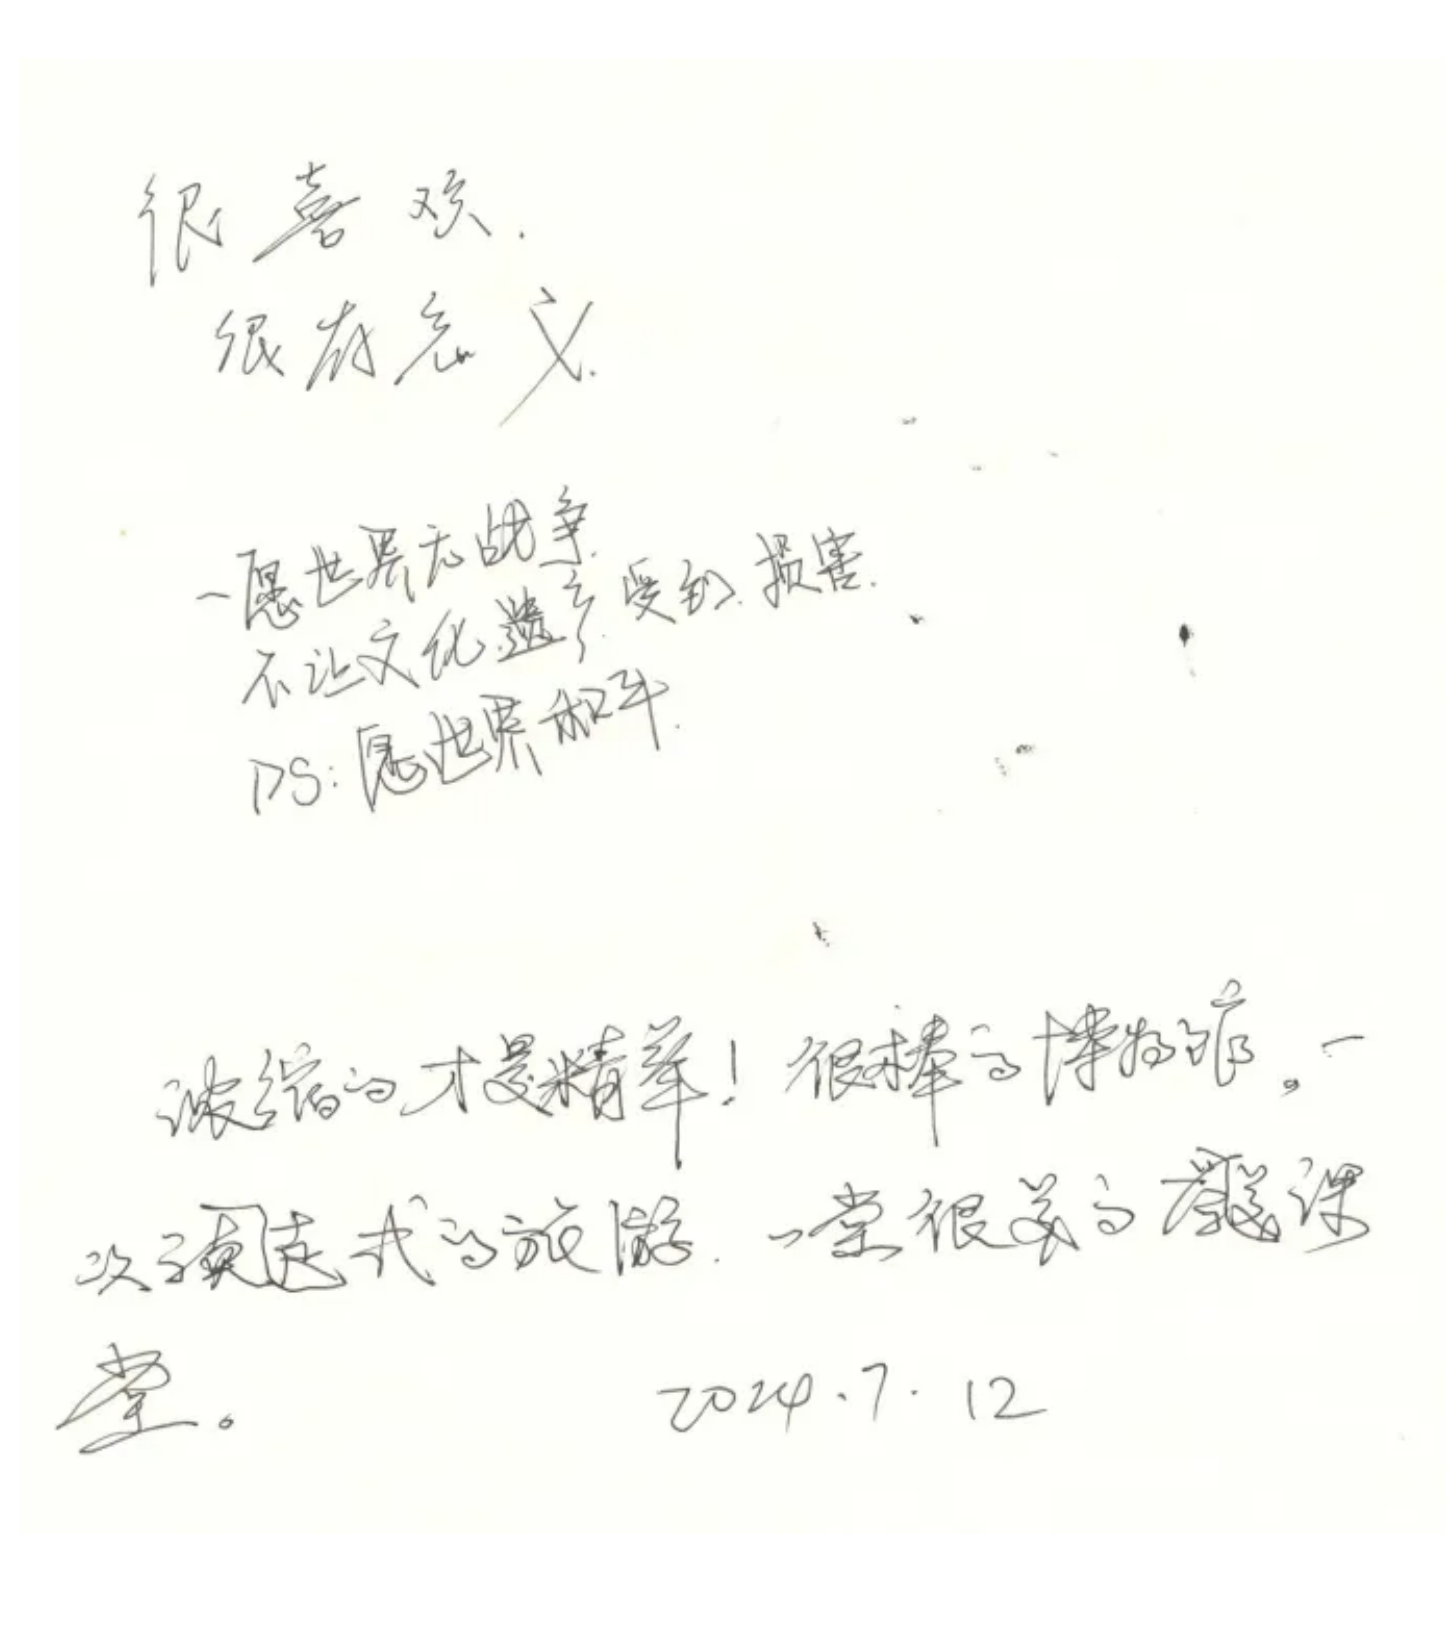 很喜欢.
很有意义.
一愿世界无战争.
不让文化遗产受到损害.
PS:愿世界和平.
浓缩的才是精华！很棒的博物馆。一
次预支式的旅游.一堂很美的
课
堂。
2024.7.12